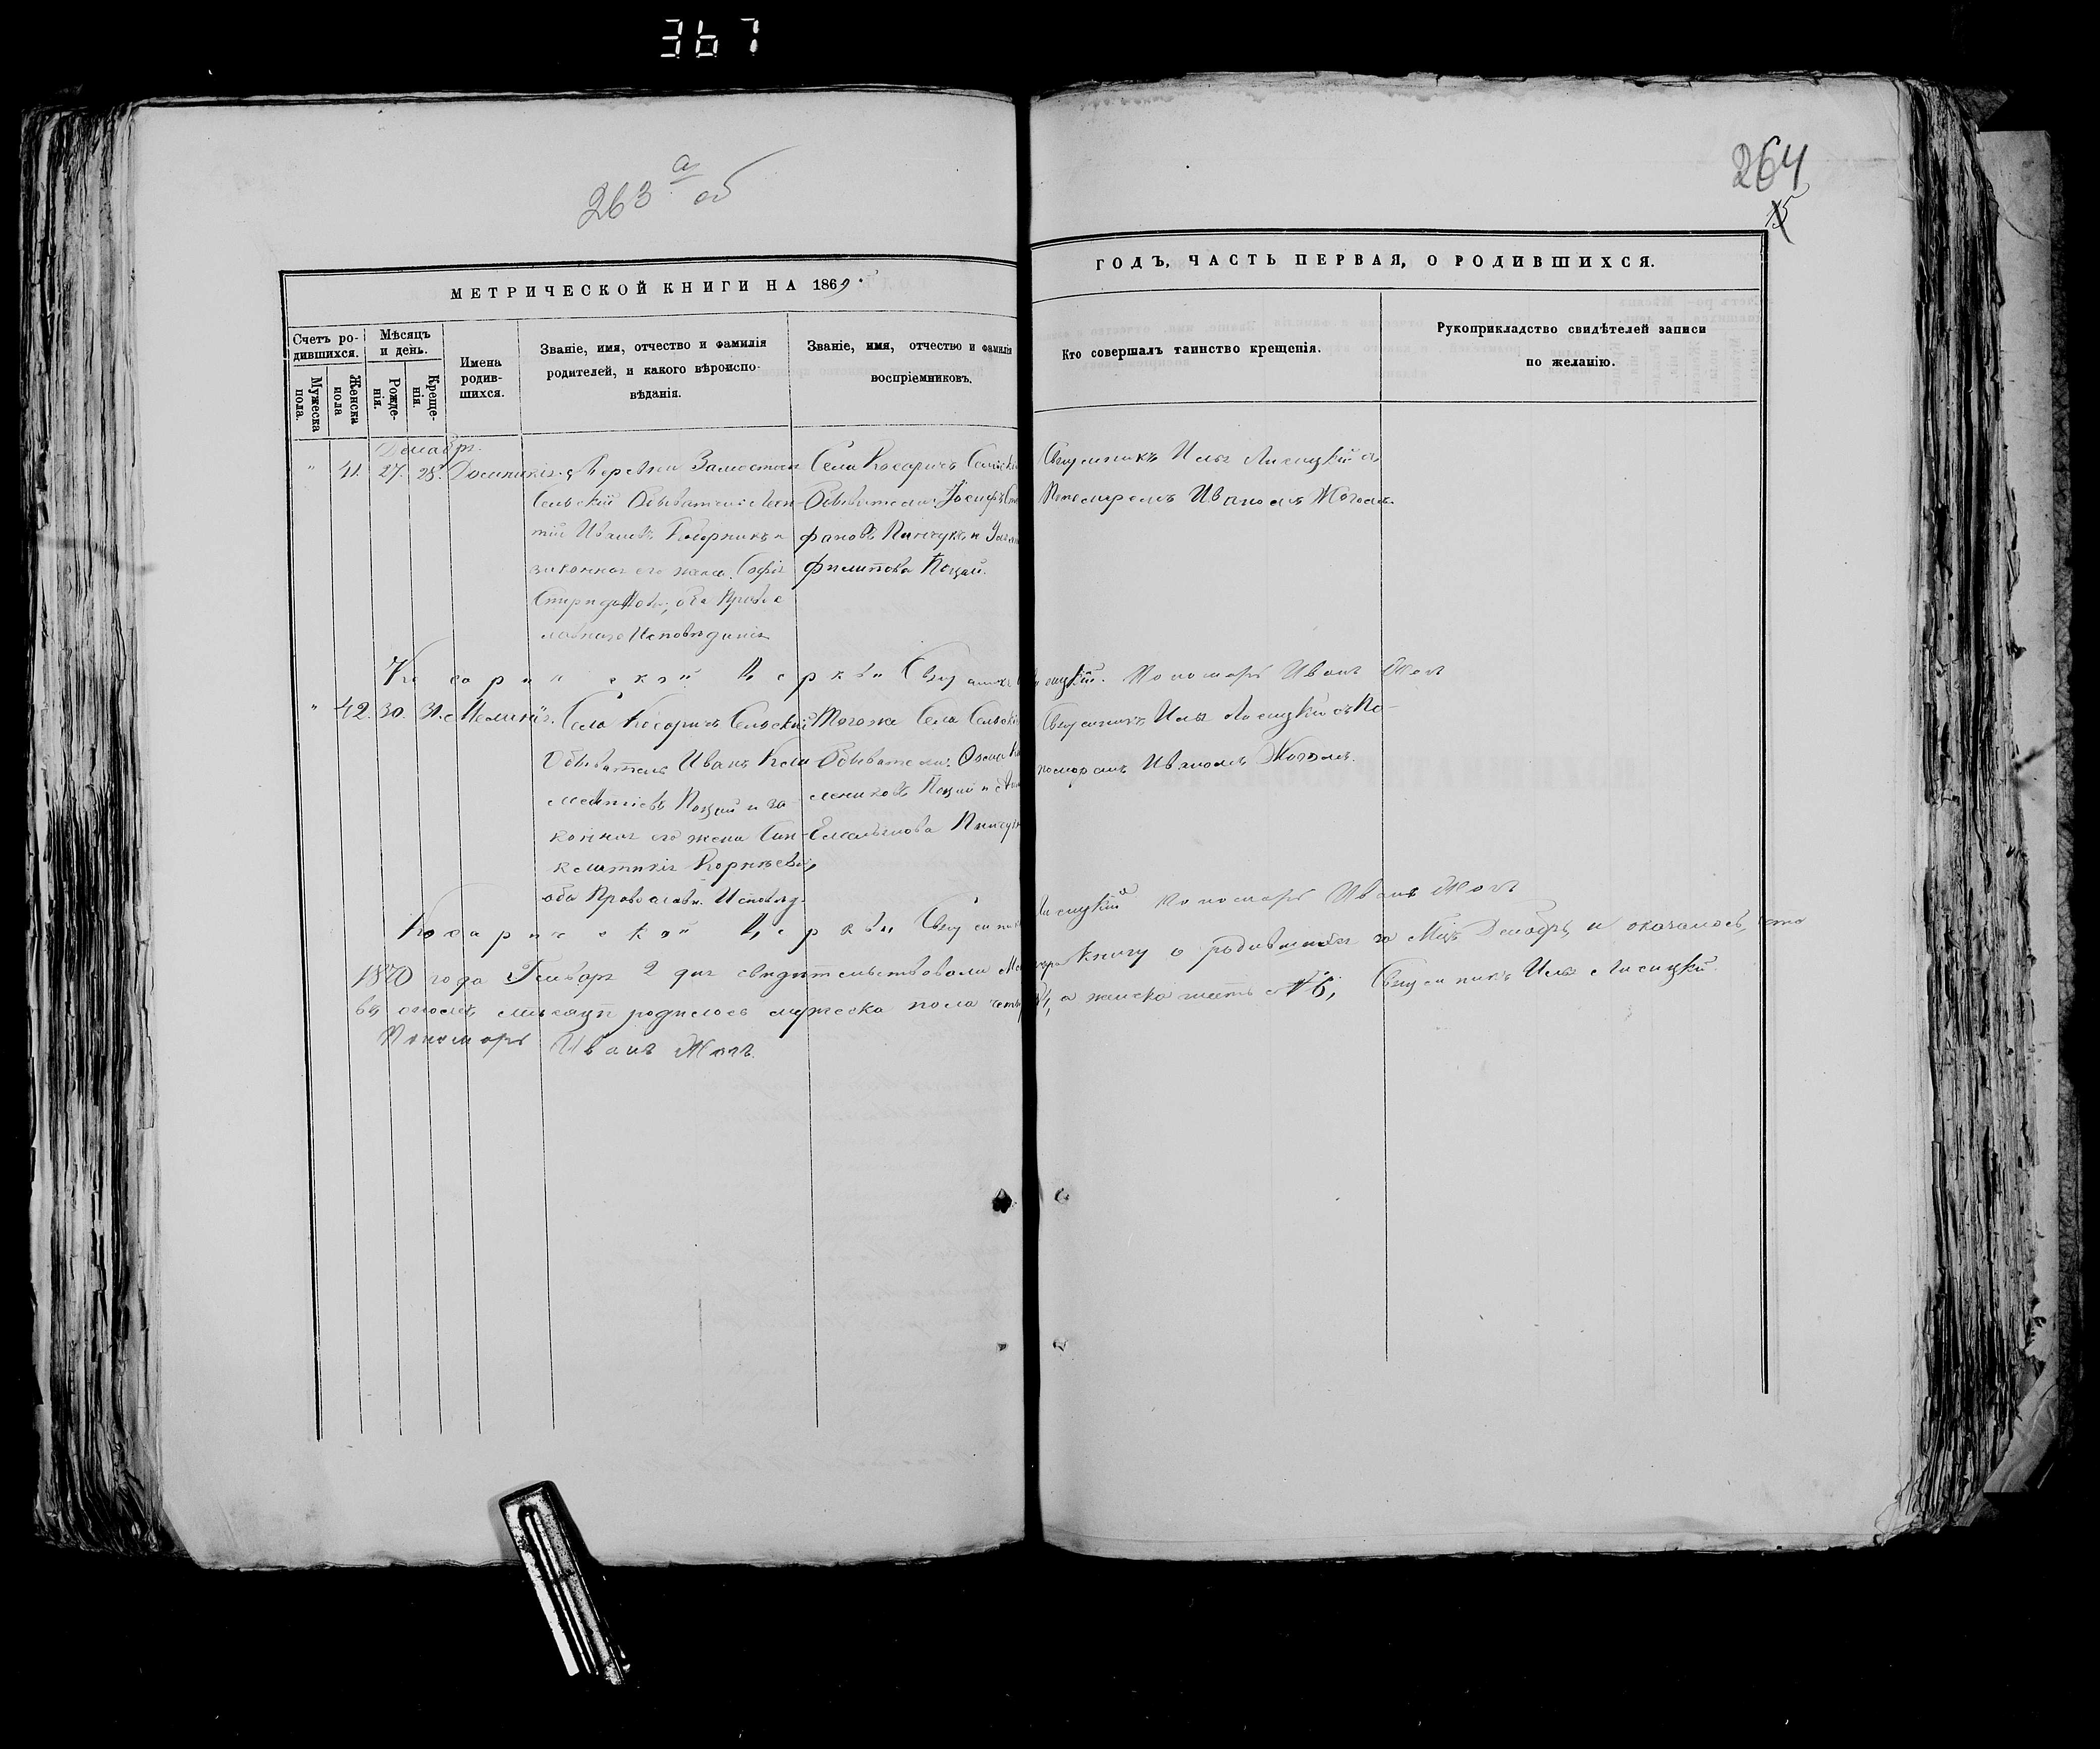 367
263 а об
264
15
МЕТРИЧЕСКОЙ КНИГИ НА 1869.
ГОДЪ, ЧАСТЬ ПЕРВАЯ, О РОДИВШИХСЯ.
Счетъ родившихся.
Мужеска пола.
Женска пола
Мѣсяцъ и день.
Рожденія.
Крещенія.
Имена родившихся.
Званіе, имя, отчество и фамилія
родителей, и какого вѣроиспо-
вѣданія.
Званіе, имя, отчество и фамилія
воспріемниковъ.
Кто совершалъ таинство крещенія.
Рукоприкладство свидѣтелей записи
по желанію.
Декабрь
" 41. 27. 28. Домникія.
Деревни
Сельскій Обыватель
Ивановъ и
законная его жена Софія
оба Правос
лавнаго Исповѣданія
Села Косаричъ
Обыватель Іосифъ
фановъ Пинчукъ и
Филипова Коцай.
Священникъ Илья Лисицкій съ
Пономаремъ Иваномъ Жогомъ.
Косаричской Церкви Священникъ Илья Лисицкій. Пономарь Иванъ Жогъ
" 42. 30. 31. Меланія.
Села Косаричъ Сельскій
Обыватель Иванъ Кли-
ментіевъ Коцай и за-
конная его жена Син-
клитикія Корнѣева,
оба Православн. Исповѣд.
Тогоже Села
Обыватель Ѳома
Коцай и
Емельянова Пинчук
Священникъ Илья Лисицкій съ По-
номаремъ Иваномъ Жогомъ.
Косаричской Церкви Священникъ Лисицкій Пономарь Иванъ Жогъ
1870 года Генваря 2 дня свидѣтельствовали книгу о родившихся за Мцъ Декабрь, и оказалось, что
въ ономъ мѣсяцѣ родилось мужеска пола а женска шесть 6, Священникъ Илья Лисицкій.
Пономарь Иванъ Жогъ.